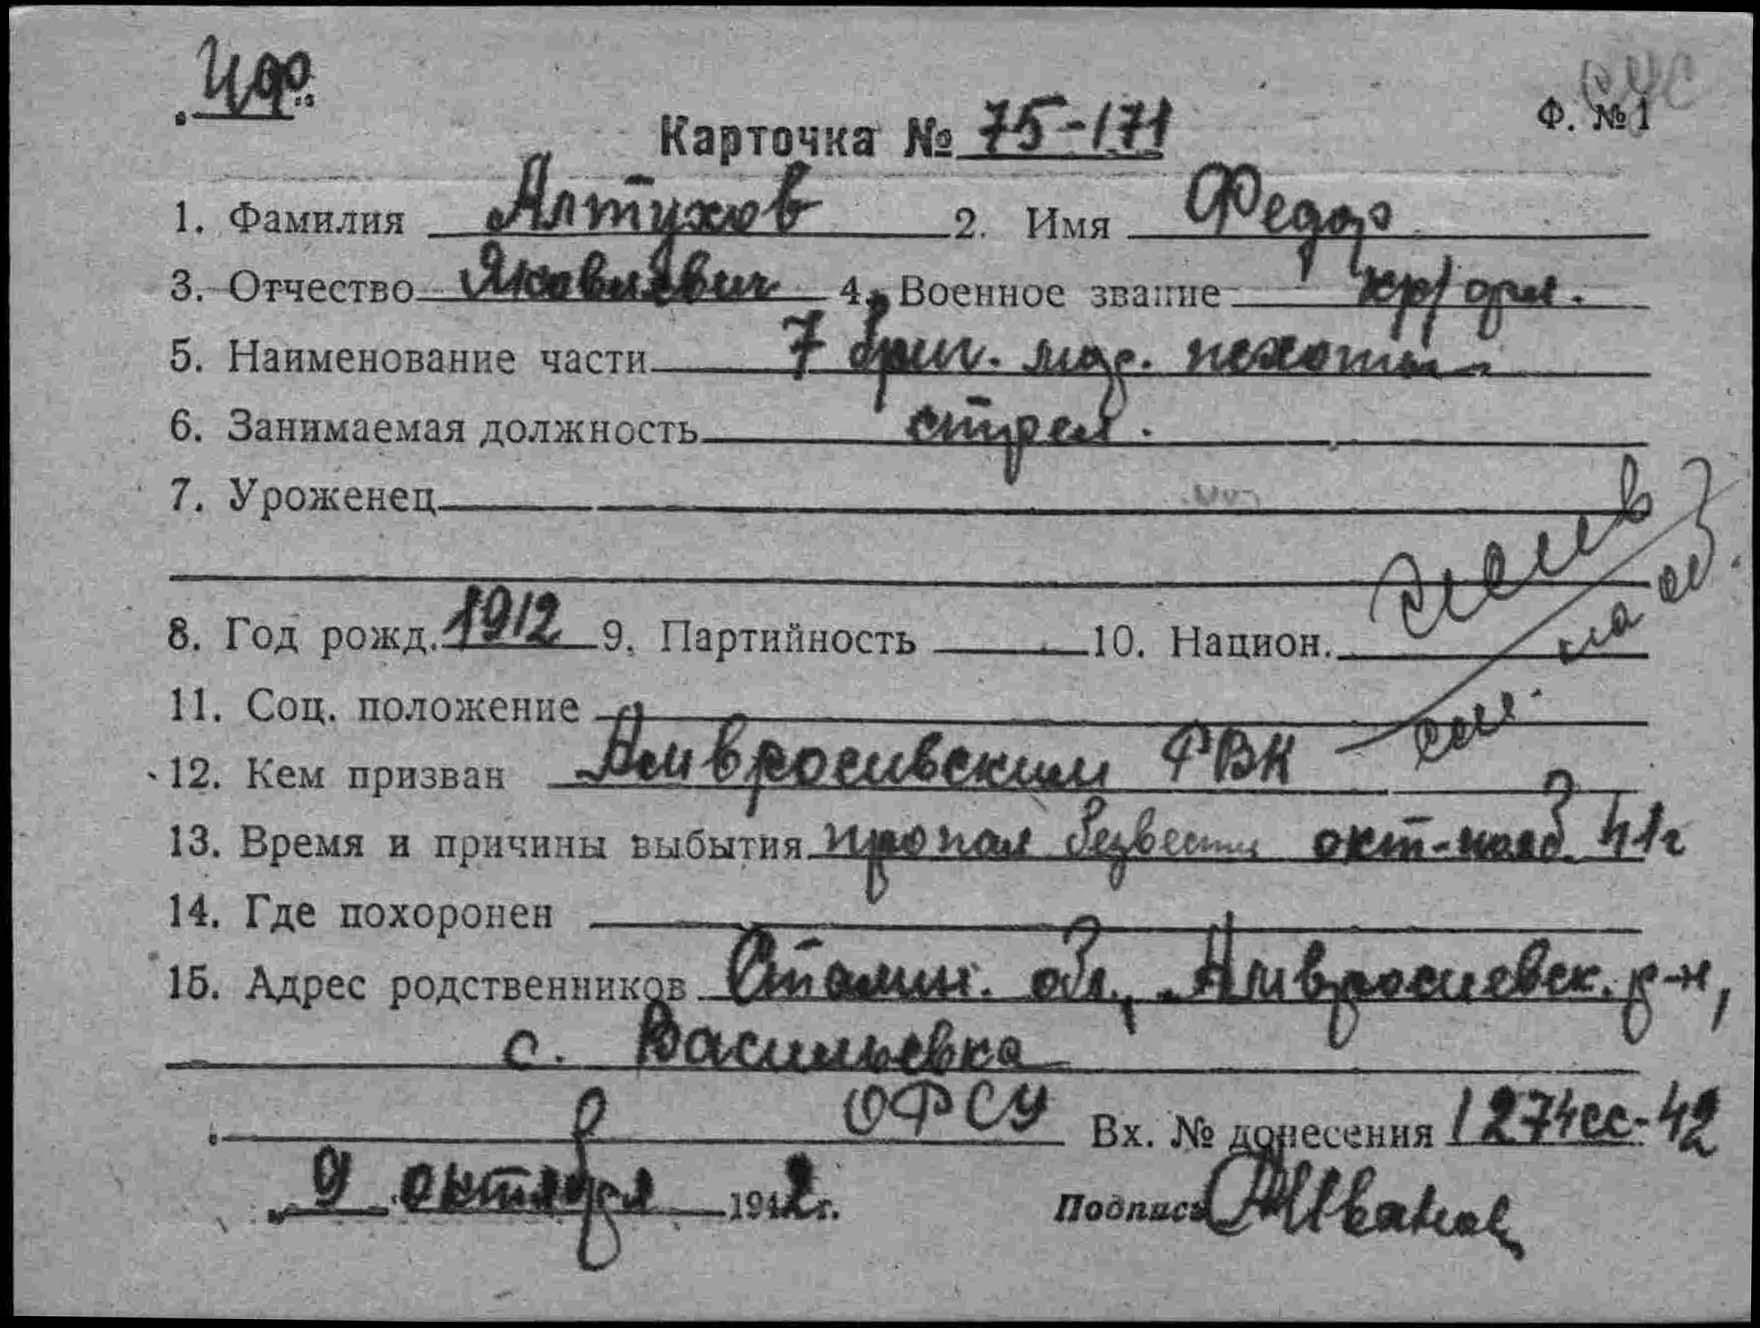 ИФ
Ф. №1
Карточка № 75-171
1. Фамилия Алтухов 2. Имя Федор
3. Отчество Яковлевич 4. Военное звание кр/арм.
5. Наименование части 7 бриг. мор. пехоты
6. Занимаемая должность стрел.
7. Уроженец
8. Год рожд. 1912 9. Партийность 10. Национ.
11. Соц. положение
12. Кем призван Амвросивским РВК
13. Время и причины выбытия пропал безвести окт-нояб. 41г
14. Где похоронен
15. Адрес родственников Сталин. обл., Амвросиевск. р-н,
с. Васильевка
ОФСУ Вх. № донесения 1274сс-42
9 октября 1942 г. Подпись